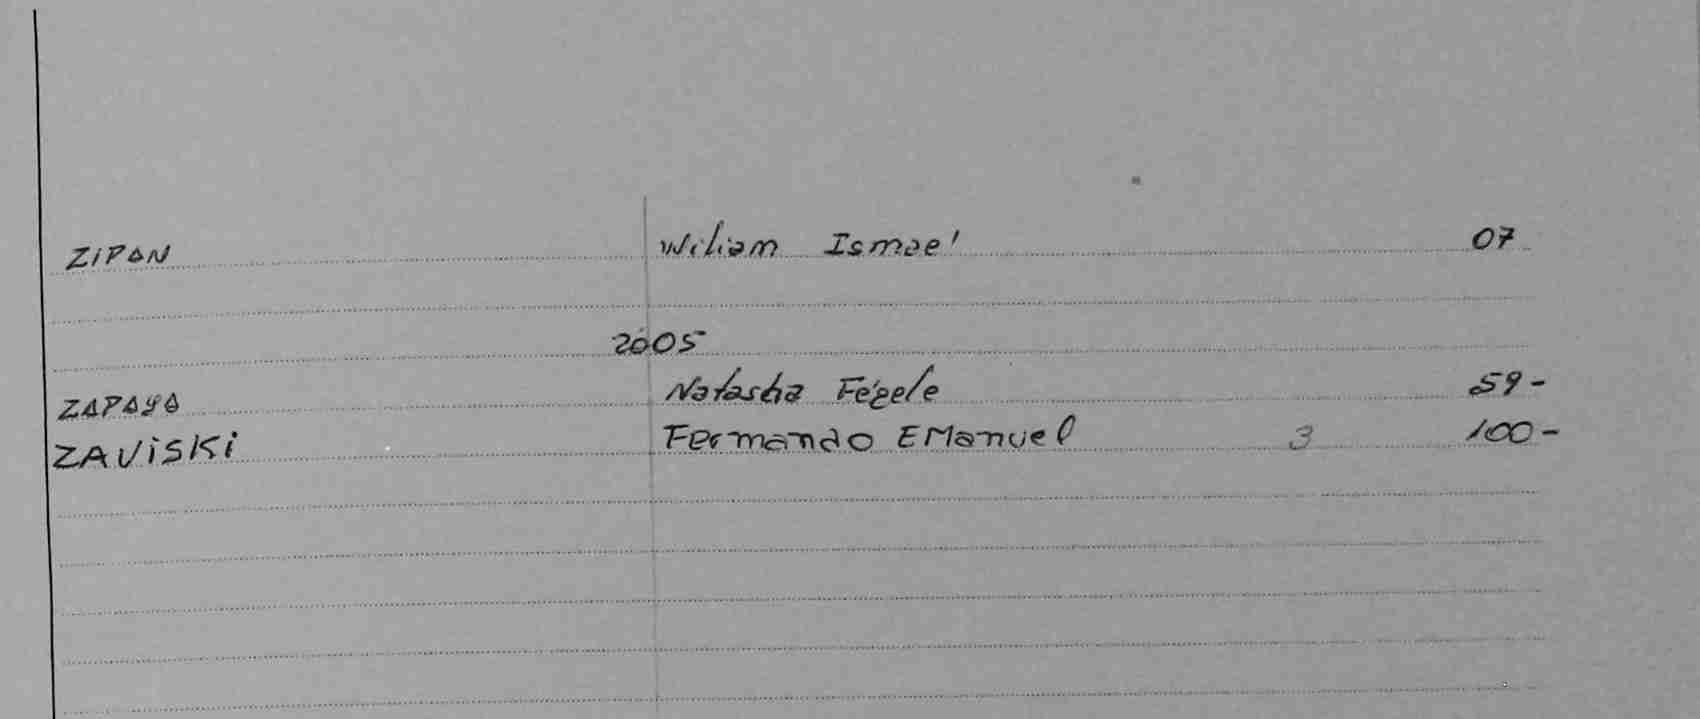 ZIPAN Wiliam Ismael 07
2005
ZAPAYA Natasha 59-
ZAVISKI Fernando EManuel 3 100-